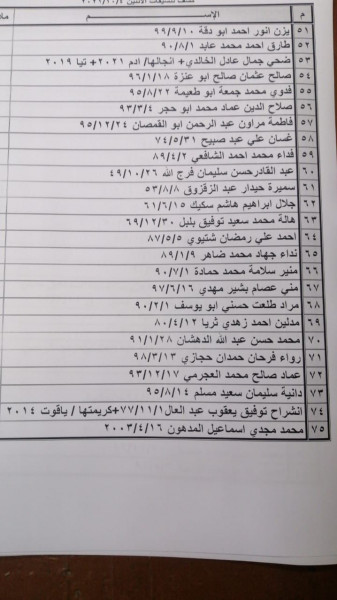 كشف تنسيقات الاثنين ٢٠٢١/١٠/٤
م الإســـــــم
٥١ يزن انور احمد ابو دقة ٩٩/٩/١٠
٥٢ طارق احمد محمد عابد ٩٠/٨/١
٥٣ ضحي جمال عادل الخالدي+ انجالها/ ادم ٢٠٢١+ تيا ٢٠١٩
٥٤ صالح عثمان صالح ابو عنزة ٩٦/١/١٨
٥٥ فدوي محمد جمعة ابو طعيمة ٩٥/٨/٢٢
٥٦ صلاح الدين عماد محمد ابو حجر ٩٣/٣/٤
٥٧ فاطمة مراون عبد الرحمن ابو القمصان ٩٥/١٢/٢٤
٥٨ غسان علي عبد صبيح ٧٤/٥/٣١
٥٩ فداء محمد احمد الشافعي ٨٩/٤/٢
٦٠ عبد القادرحسن سليمان فرج الله ٤٩/١٠/٢٦
٦١ سميرة حيدار عبد الزقزوق ٥٣/٨/٨
٦٢ جلال ابراهيم هاشم سكيك ٦١/٦/١٥
٦٣ هالة محمد سعيد توفيق بلبل ٦٩/١٢/٣٠
٦٤ احمد علي رمضان شتيوي ٨٧/٥/٥
٦٥ نداء جهاد محمد ضاهر ٨٩/١/٩
٦٦ منير سلامة محمد حمادة ٩٠/٧/١
٦٧ مني عصام بشير مهدي ٩٧/٦/١٦
٦٨ مراد طلعت حسني ابو يوسف ٩٠/٢/١
٦٩ مدلين احمد زهدي ثريا ٨٠/٤/١٢
٧٠ محمد حسن عبد الله الدهشان ٩١/١/٢٨
٧١ رواء فرحان حمدان حجازي ٩٨/٣/١٣
٧٢ عماد صالح محمد العجرمي ٩٣/١٢/١٧
٧٣ دانية سليمان سعيد مسلم ٩٥/٨/١٤
٧٤ انشراح توفيق يعقوب عبد العال٧٧/١١/١+كريمتها / ياقوت ٢٠١٤
٧٥ محمد مجدي اسماعيل المدهون ٢٠٠٣/٤/١٦